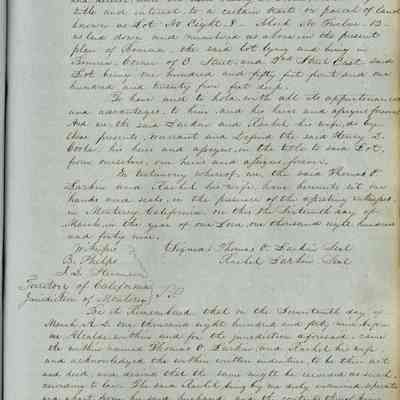 title and interest to a certain tract or parcel of land
known as Lot No Eight 8 Block No Twelve 12
as laid down and numbered as above in the present
plan of Benicia, the said lot lying and being in
Benicia, Corner of C Street and 2nd Street East, said
Lot being one hundred and fifty feet front and one
hundred and twenty five feet deep.
To have and to hold with all its appurtenances
and advantages, to him, and his heirs and assigns forever
And we the said Larkin and Rachel his wife, do by
these presents, warrant and Defend the said Henry D.
Cooke, his heirs and assigns, in the title to said Lot,
from ourselves, our heirs and assigns, forever.
In testimony whereof, we, the said Thomas O.
Larkin and Rachel his wife, have hereunto set our
hands and seals, in the presence of the witnesses,
in Monterey California, on this the Sixteenth day of
March, in the year of our Lord, one thousand eight hundred
and forty nine.
Witnesses Signed Thomas O. Larkin Seal
B. Phelps Rachel Larkin Seal
Territory of California
Jurisdiction of Monterey SS
Be it Remembered that on the Seventeenth day of
March A.D. one thousand eight hundred and forty nine before
me Alcalde within and for the jurisdiction aforesaid, came
the within named Thomas O. Larkin and Rachel his wife
and acknowledged the within written indenture to be their act
and deed, and desired that the same might be recorded as such,
according to law. The said Rachel being by me duly examined separate
and apart from her said husband and the contents